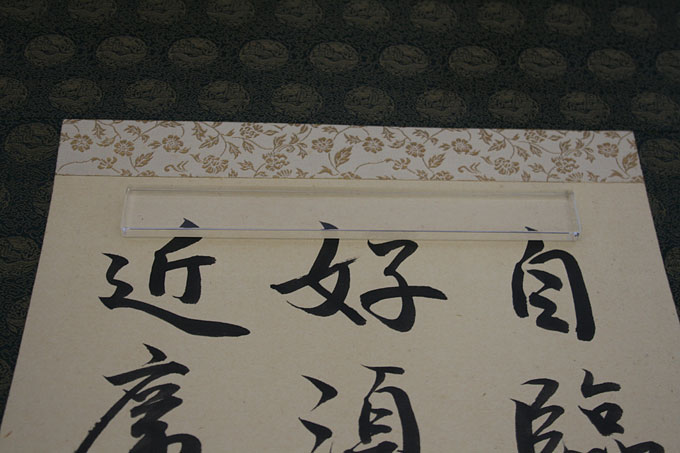 自臨
好須
近